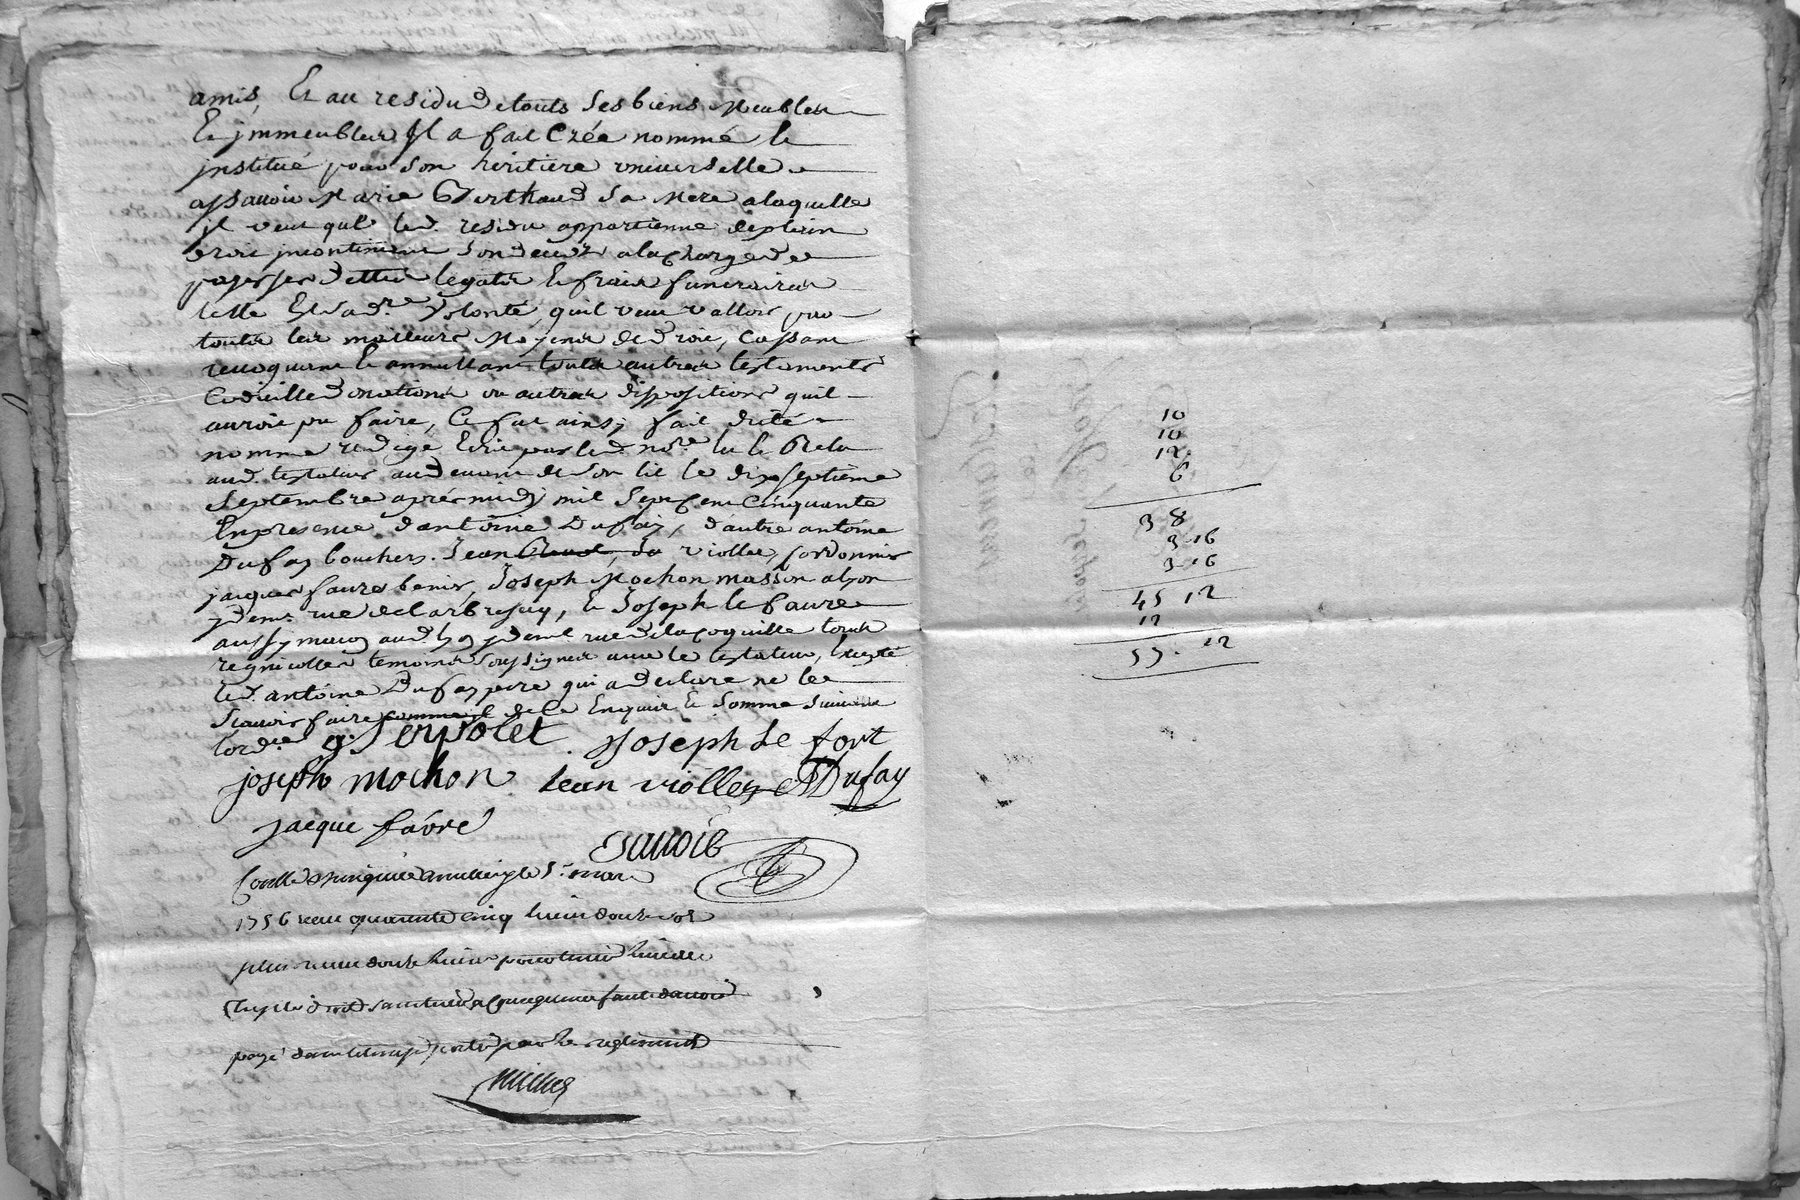 amis, Et au residu de touts ses biens meubles
Et jmmeubles Il a fait Créé nommé et
jnstitué pour son héritiere universelle
assavoir Marie Berthaud sa Mere a laquelle
il veut que led. residu appartienne de plein
droit jncontinent son deceds a la charge de
payer ses dettes legats et frais funeraires
telle Est sa dre. Volonté quil veut valloir par
touts les meilleurs Moyens de droit, Cassant
revoquant et annullant touts autres testaments
Codicille donations ou autres dispositions quil
auroit pu faire, Ce fut ainsy fait dicté
nommé redigé Ecrit par led. nore. lu et Relu
aud. testateur au devant de son lit le dix septieme
Septembre aprés midy mil Sept Cent Cinquante
En presence d'antoine Dufay, d'autre antoine
Dufay bouchers. Jean du viollet, cordonnier
jacques faure Joseph Mochon masson a lyon
y demt. rue de larbresay, et Joseph le faure
aussy maçon aud. lyon y demt rue de la coquille touts
regnicolles temoins soussignés avec le testateur, Excepté
led. antoine Dufay pere qui a declaré ne le
scavoir faire de ce Enquis et sommé suivant
lordce. g. Serpolet. Joseph Le fort
joseph mochon Jean violley A Dufay
jacque favre
Savoie
Conllé a lyon le 1r. mars
1756 receu quarante cinq livres douze sols
plus receu douze livres
payé dans le temps porté par les reglements
10
10
12
6
38
3 16
3 16
45 12
12
57. 12